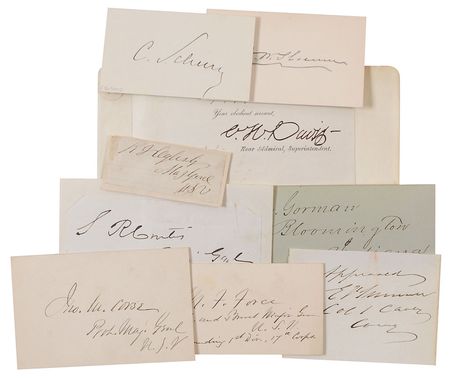 C. Schurz
Your obedient servant,
C. H. Davis
Rear Admiral, Superintendent.
Maj Genl
U.S.V.
S R Curtis
Genl
Gorman
Bloomington
Jno. M. Corse
Bvt. Maj. Genl
U.S.V
M. F. Force
and Brevet Major Gen
U.S.V
1st Div. 17th Corps
Approved
E V Sumner
Col 1 Cavy
Comg